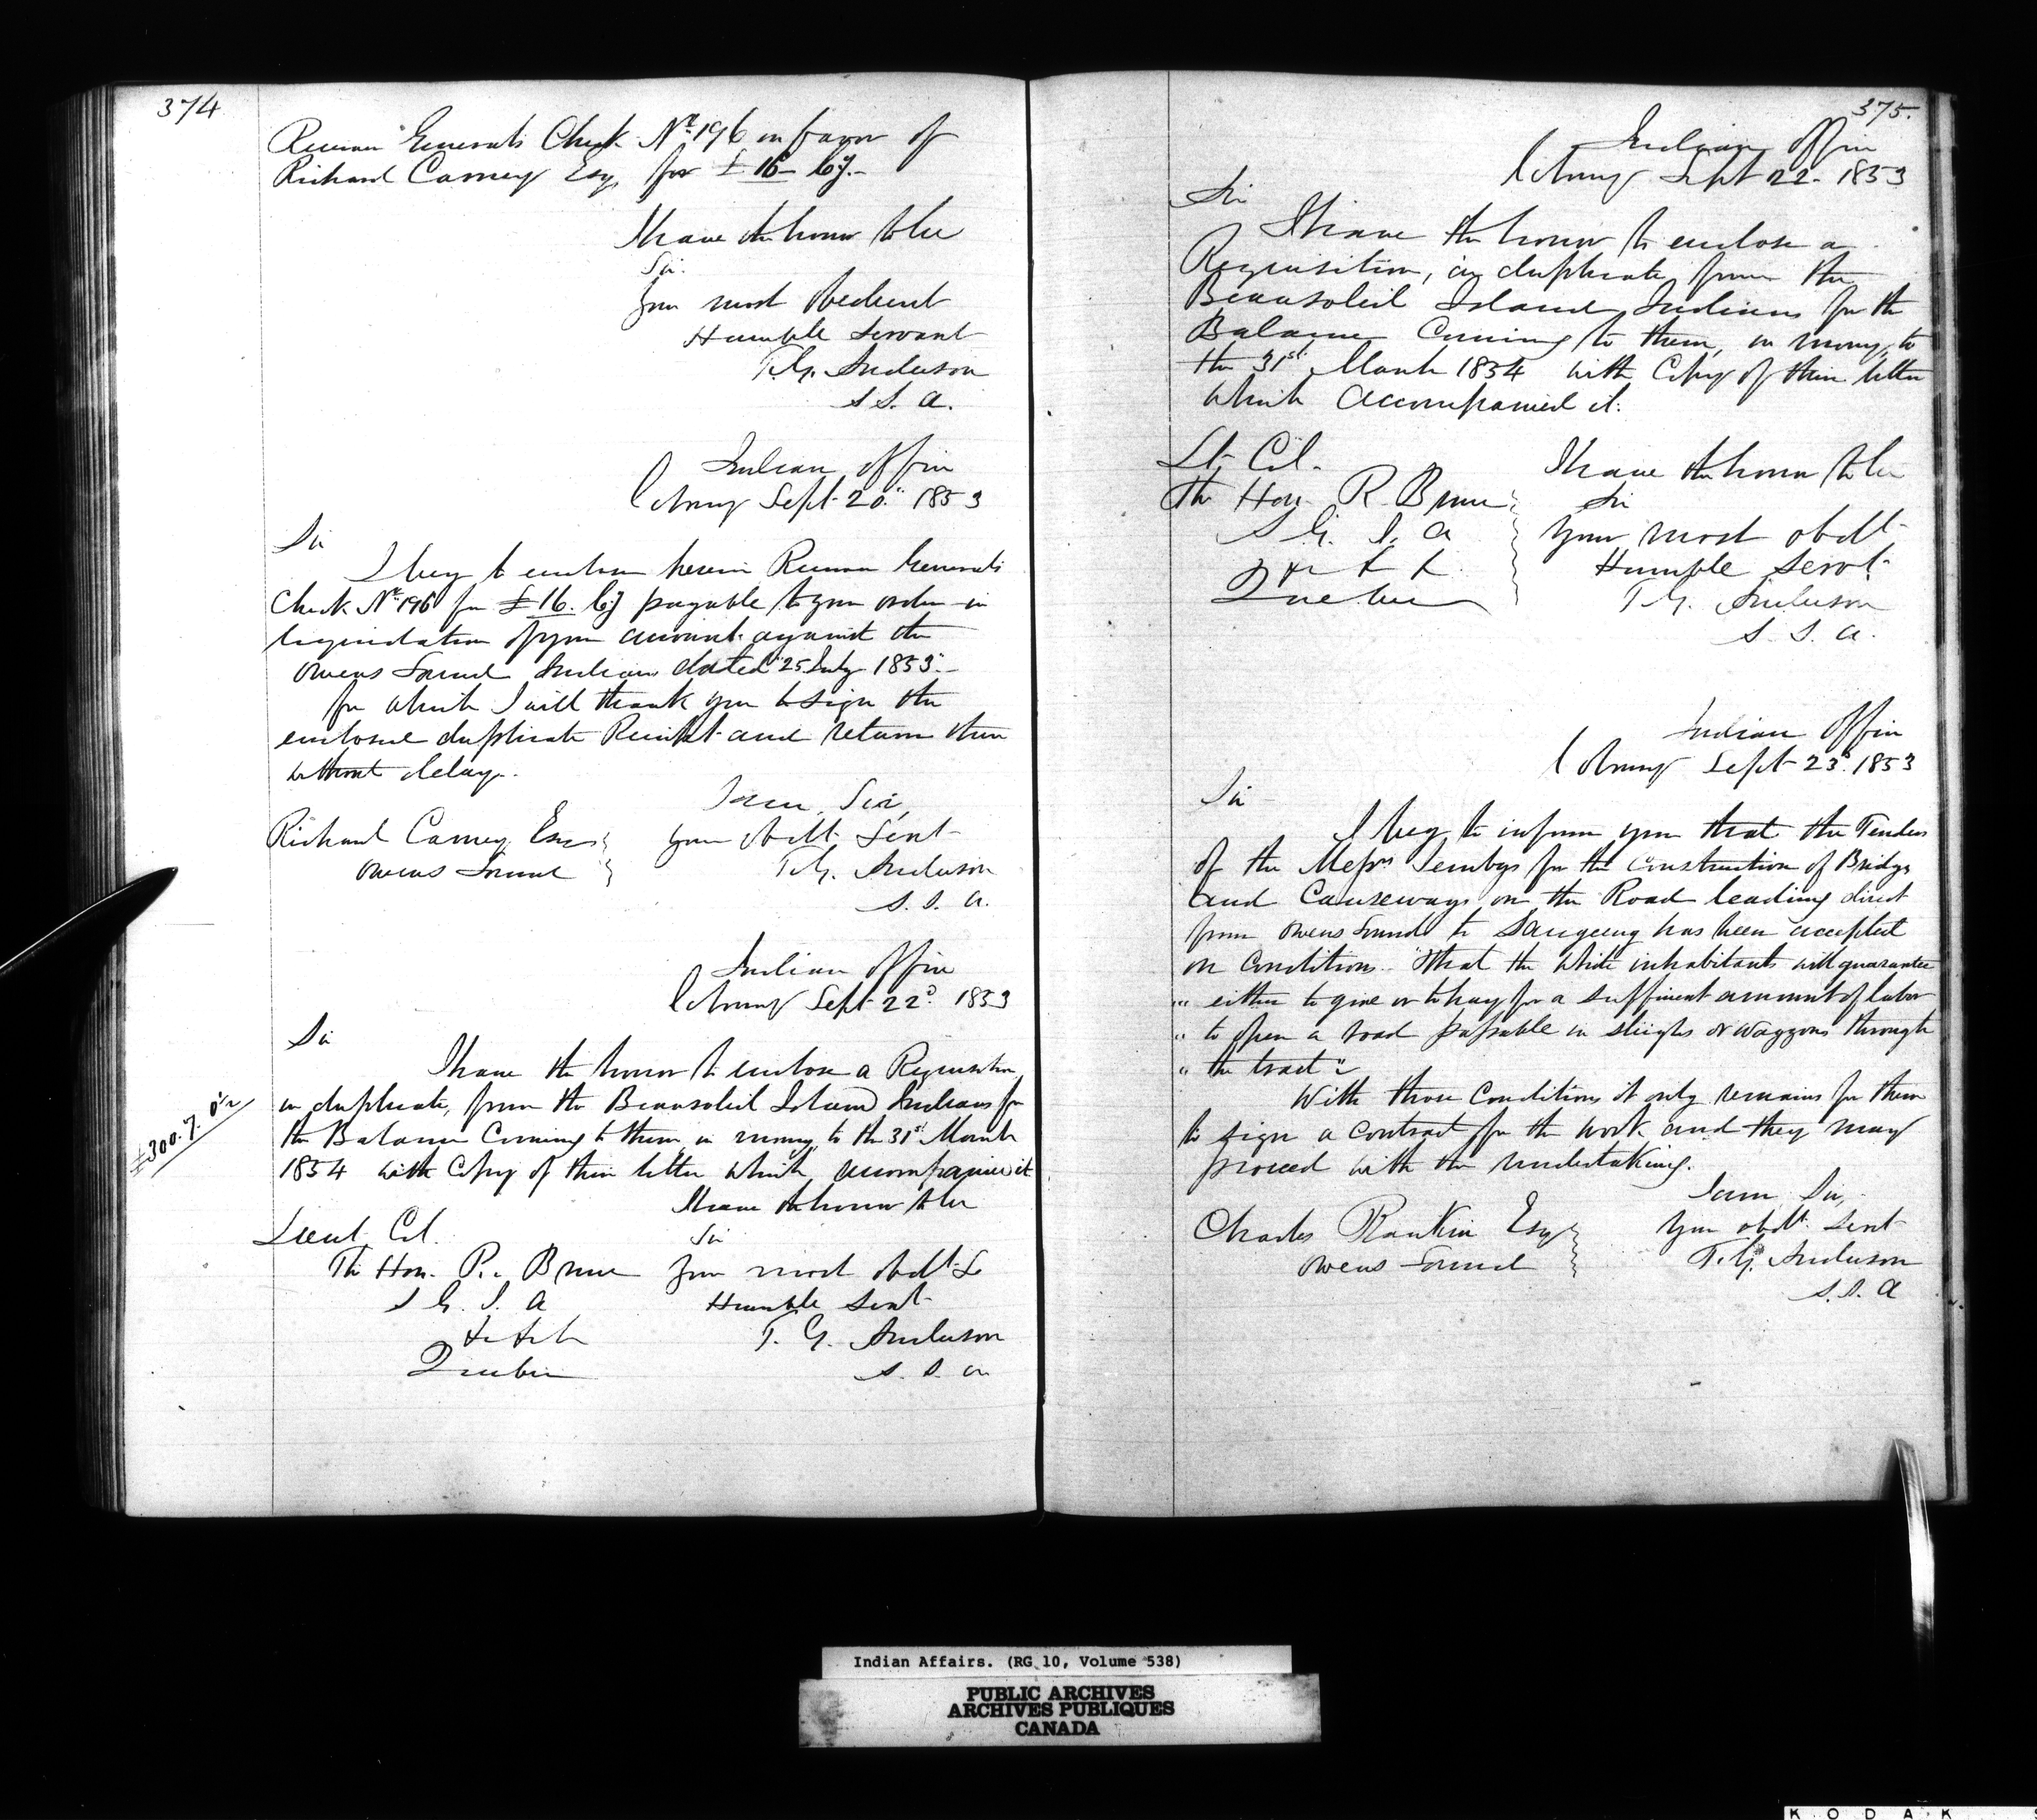 374
Receiver Generals Check No. 196 in favor of
Richard Carney Esq, for £16
I have the honor to be
Sir
Your most obedient
Humble Servant
T.G. Anderson
S.S.A.
Indian Office
Cobourg Sept 20th 1853
Sir
I beg to enclose herein Receiver Generals
Check No. 196 for £16. payable to your order in
liquidation of your account against the
Owens Sound Indians dated 25 July 1853.
for which I will thank you to sign the
enclosed duplicate Receipt and return them
without delay.
I am, Sir,
Richard Carney Esqr
your obdt. Sevt
Owens Sound
T.G. Anderson
S.S.A.
Indian Office
Cobourg Sept 22d. 1853
Sir
I have the honor to enclose a Requisition
in duplicate, from the Beausoleil Island Indians for
£300.7.
the Balance Coming to them, in money, to the 31st March
1854 with Copy of their letter which accompanied it
I have the honor to be
Lieut. Col.
Sir
The Hon. R. Bruce
Your most obdt. &
S G. I. A
Humble Sevt
&c &c &c
T. G. Anderson
Quebec
S.S.A
375.
Indian Office
Cobourg Sept 22. 1853
Sir
I have the honor to enclose a
Requisition, in duplicate, from the
Beausoleil Island Indians for the
Balance Coming to them, in money, to
the 31st. March 1854 with Copy of their letter
which accompanied it.
Lt. Col.
I have the honor to be
The Hon. R. Bruce
Sir
S G. I. A
Your most obdt
& & &
Humble Servt.
Quebec
T G. Anderson
S. S. A.
Indian Office
Cobourg Sept 23d. 1853
Sir
I beg to inform you that the Tenders
of the Messrs for the Construction of Bridges
and Causeways on the Road leading direct
from Owens Sound to Saugeeng has been accepted
on Conditions. "That the White inhabitants will guarantee
" either to give or to pay for a sufficient amount of labor
" to open a road passable in sleighs or waggons through
" the tract"
With those Conditions it only remains for them
to sign a contract for the work and they may
proceed with the undertaking.
I am Sir,
Charles Rankin Esq
Your obdt. Sevt
Owens Sound
T. G. Anderson
S.S. A
Indian Affairs. (RG 10, Volume 538)
PUBLIC ARCHIVES
ARCHIVES PUBLIQUES
CANADA
KODAK